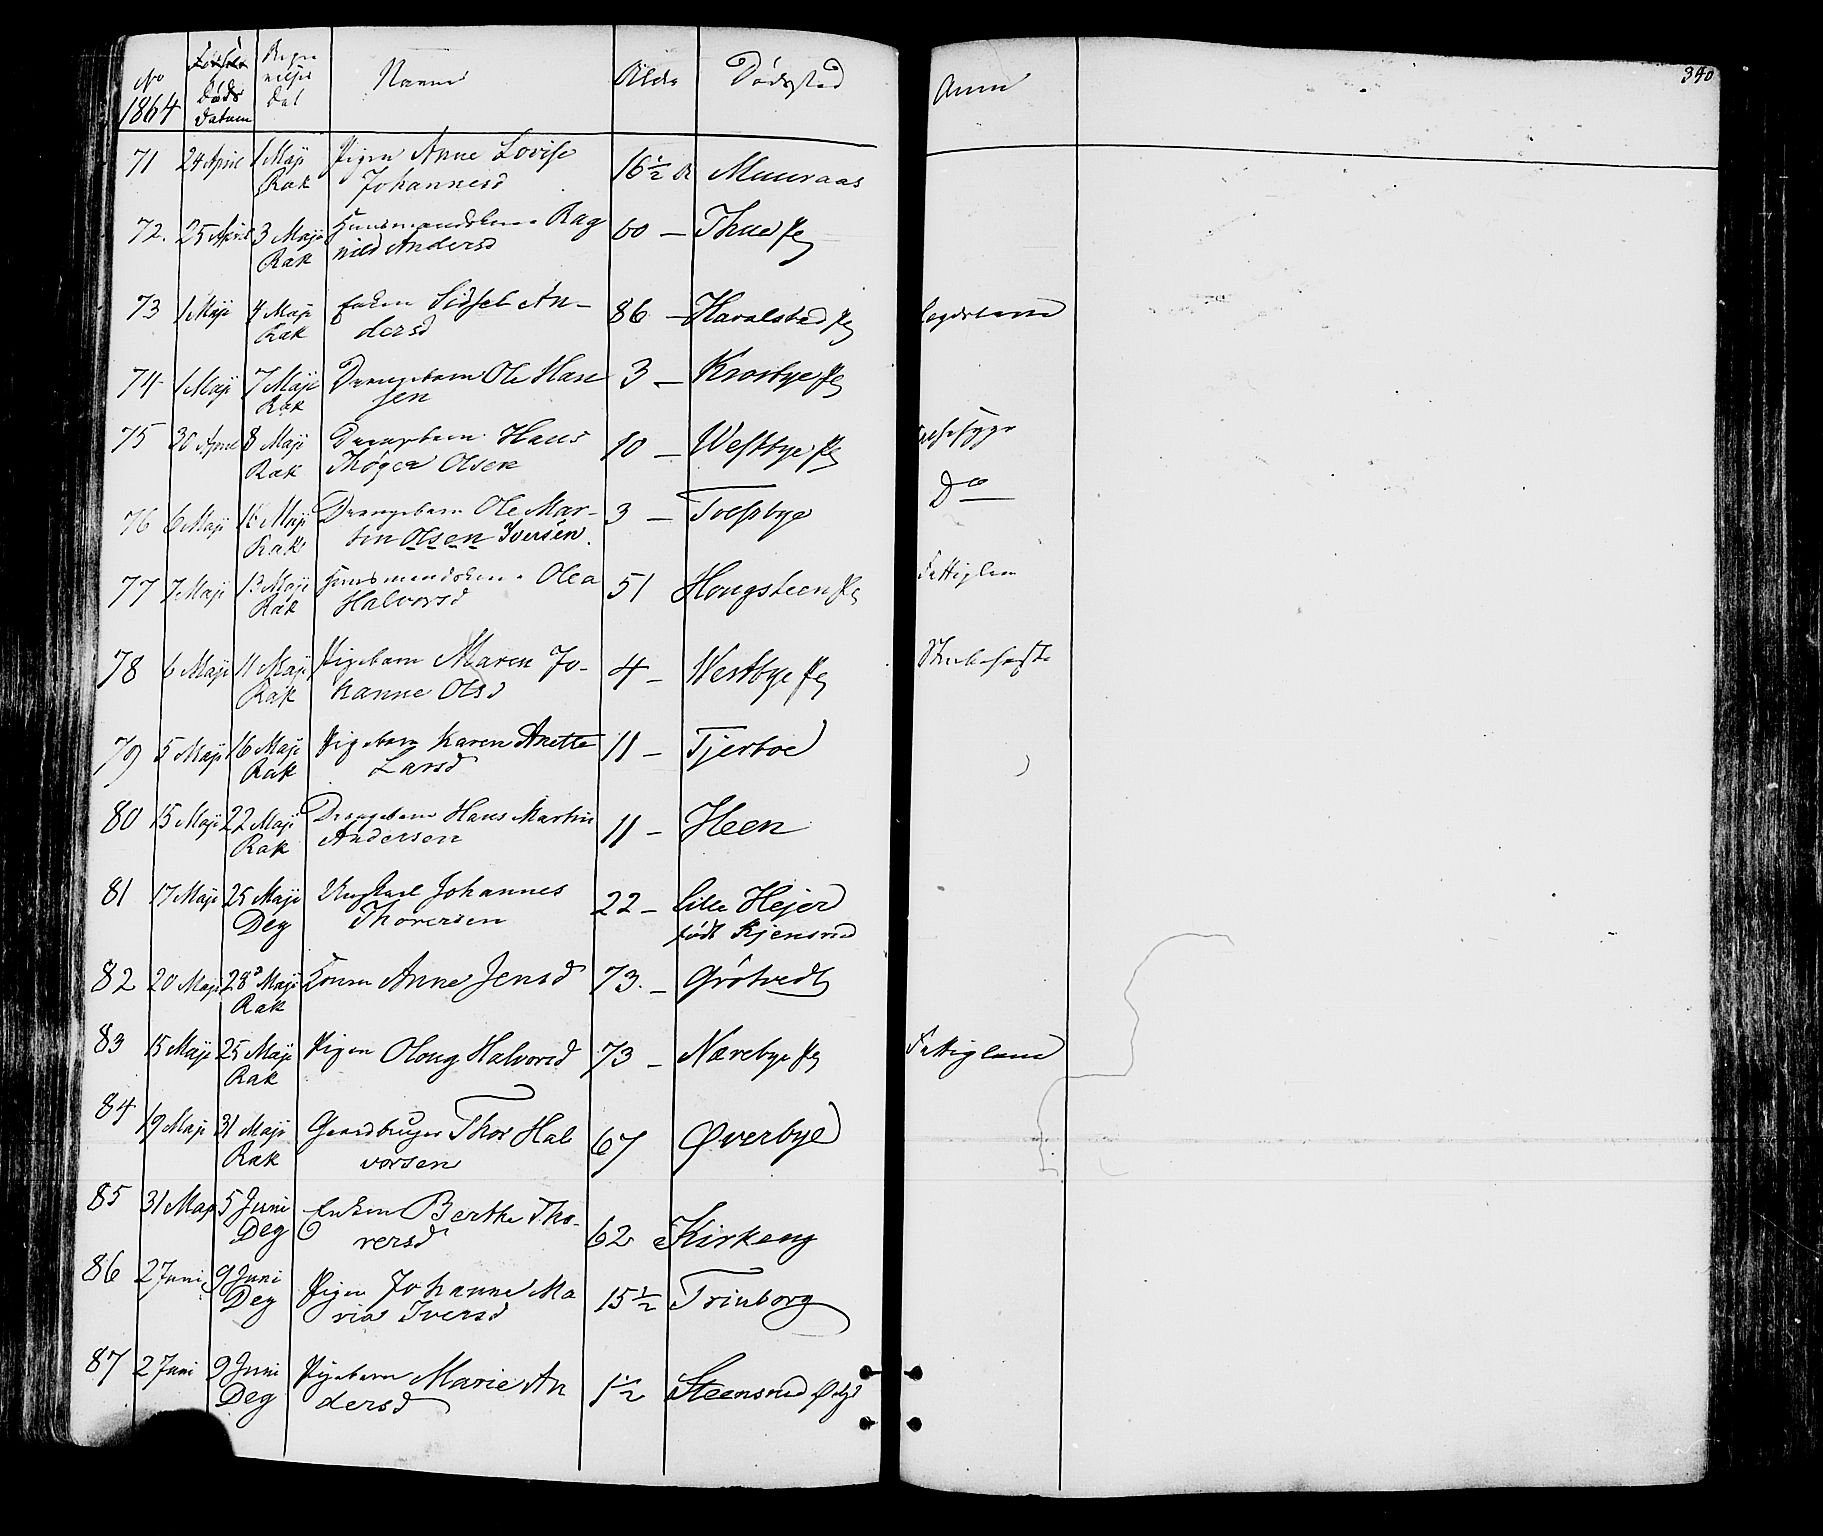 No 1864 Døds Datum Begravelses Dat Navne Alder Dødssted Anm
340
71 24 April 1 Maji Pigen Anne Lovise 16½ Muuraas
Rak Johannesd
72. 25 April 3 Maji Huusmandskone Rag 60 — Thue
Rak nild Andersd
73 1 Maji 4 Maji Enken Sidsel An- 86 — Haralstad Legdslem
Rak dersd
74 1 Maji 7 Maji Drengebarn Ole Han 3 — Krosbye
Rak sen
75 30 April 8 Maji Drengebarn Hans 10 — Westbye
Rak Thøger Olsen
76 6 Maji Maji Drengebarn Ole Mar- 3 — Do
Rak tin Olsen Iversen.
77 7 Maji Maji Huusmandskone Olea 51 Hougsteen Fattiglem
Rak Halvorsd
78 6 Maji 11 Maji Pigebarn Maren Jo- 4 — Westbye
Rak hanne Olsd
79 5 Maji 16 Maji Pigebarn Karen Anette 11 — Tjerboe
Rak Larsd
80 15 Maji 22 Maji Drengebarn Hans Martin 11 — Heen
Rak Andersen
81 17 Maji 25 Maji Ungkarl Johannes 22 — Lille Hejer
Deg Thoresen født Kjensrud
82 20 Maji 28 Maji Konen Anne Jensd 73. — Grötvedt
Rak
83 15 Maji 25 Maji Pigen Oloug Halvorsd 73 — Nærebye Fattiglem
Rak
84 19 Maji 31 Maji Gaardbruger Thor Hal 67 Øverbye
Rak vorsen
85 31 Maji 5 Juni Enken Berthe Tho- 62 Kirkeng
Deg rersd
86 2 Juni 9 Juni Pigen Johanne Ma 15½ Trinborg
Deg ria Iversd
87 2 Juni 9 Juni Pigebarn Marie An 1½ Steensrud
Deg dersd